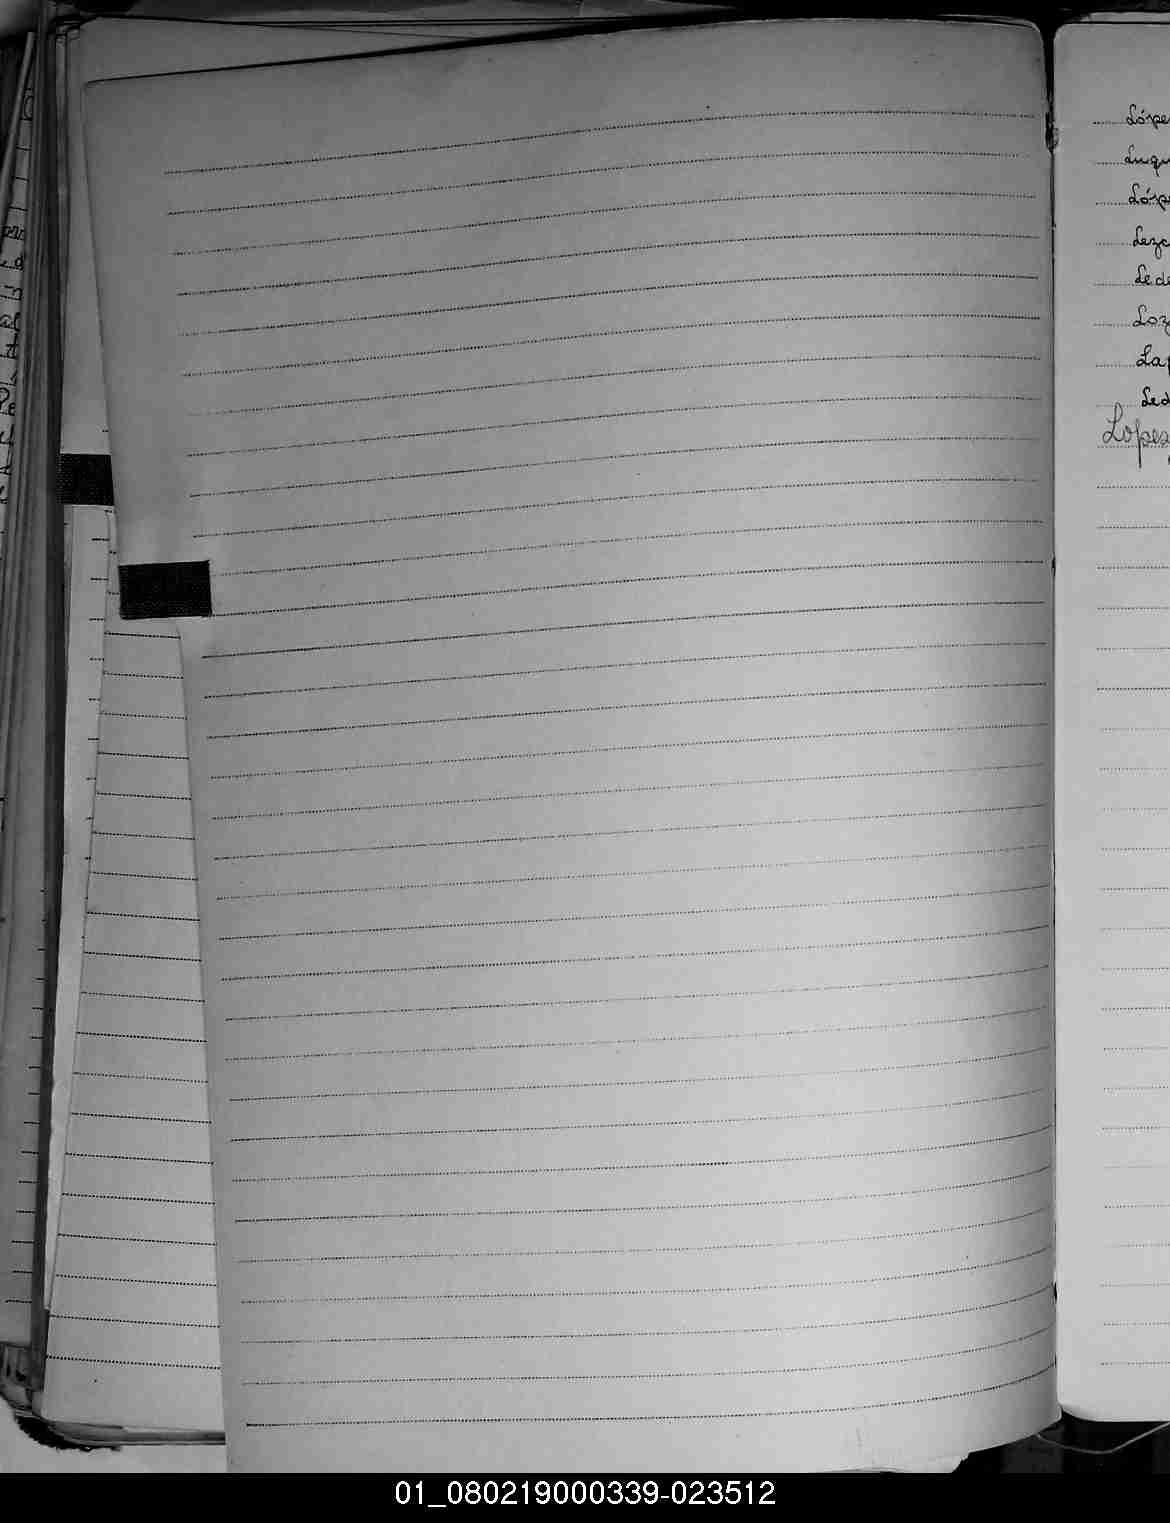 Lópe
Luqu
Lópe
Lezc
Lede
Loz
Lap
Led
Lopes
01_080219000339-023512